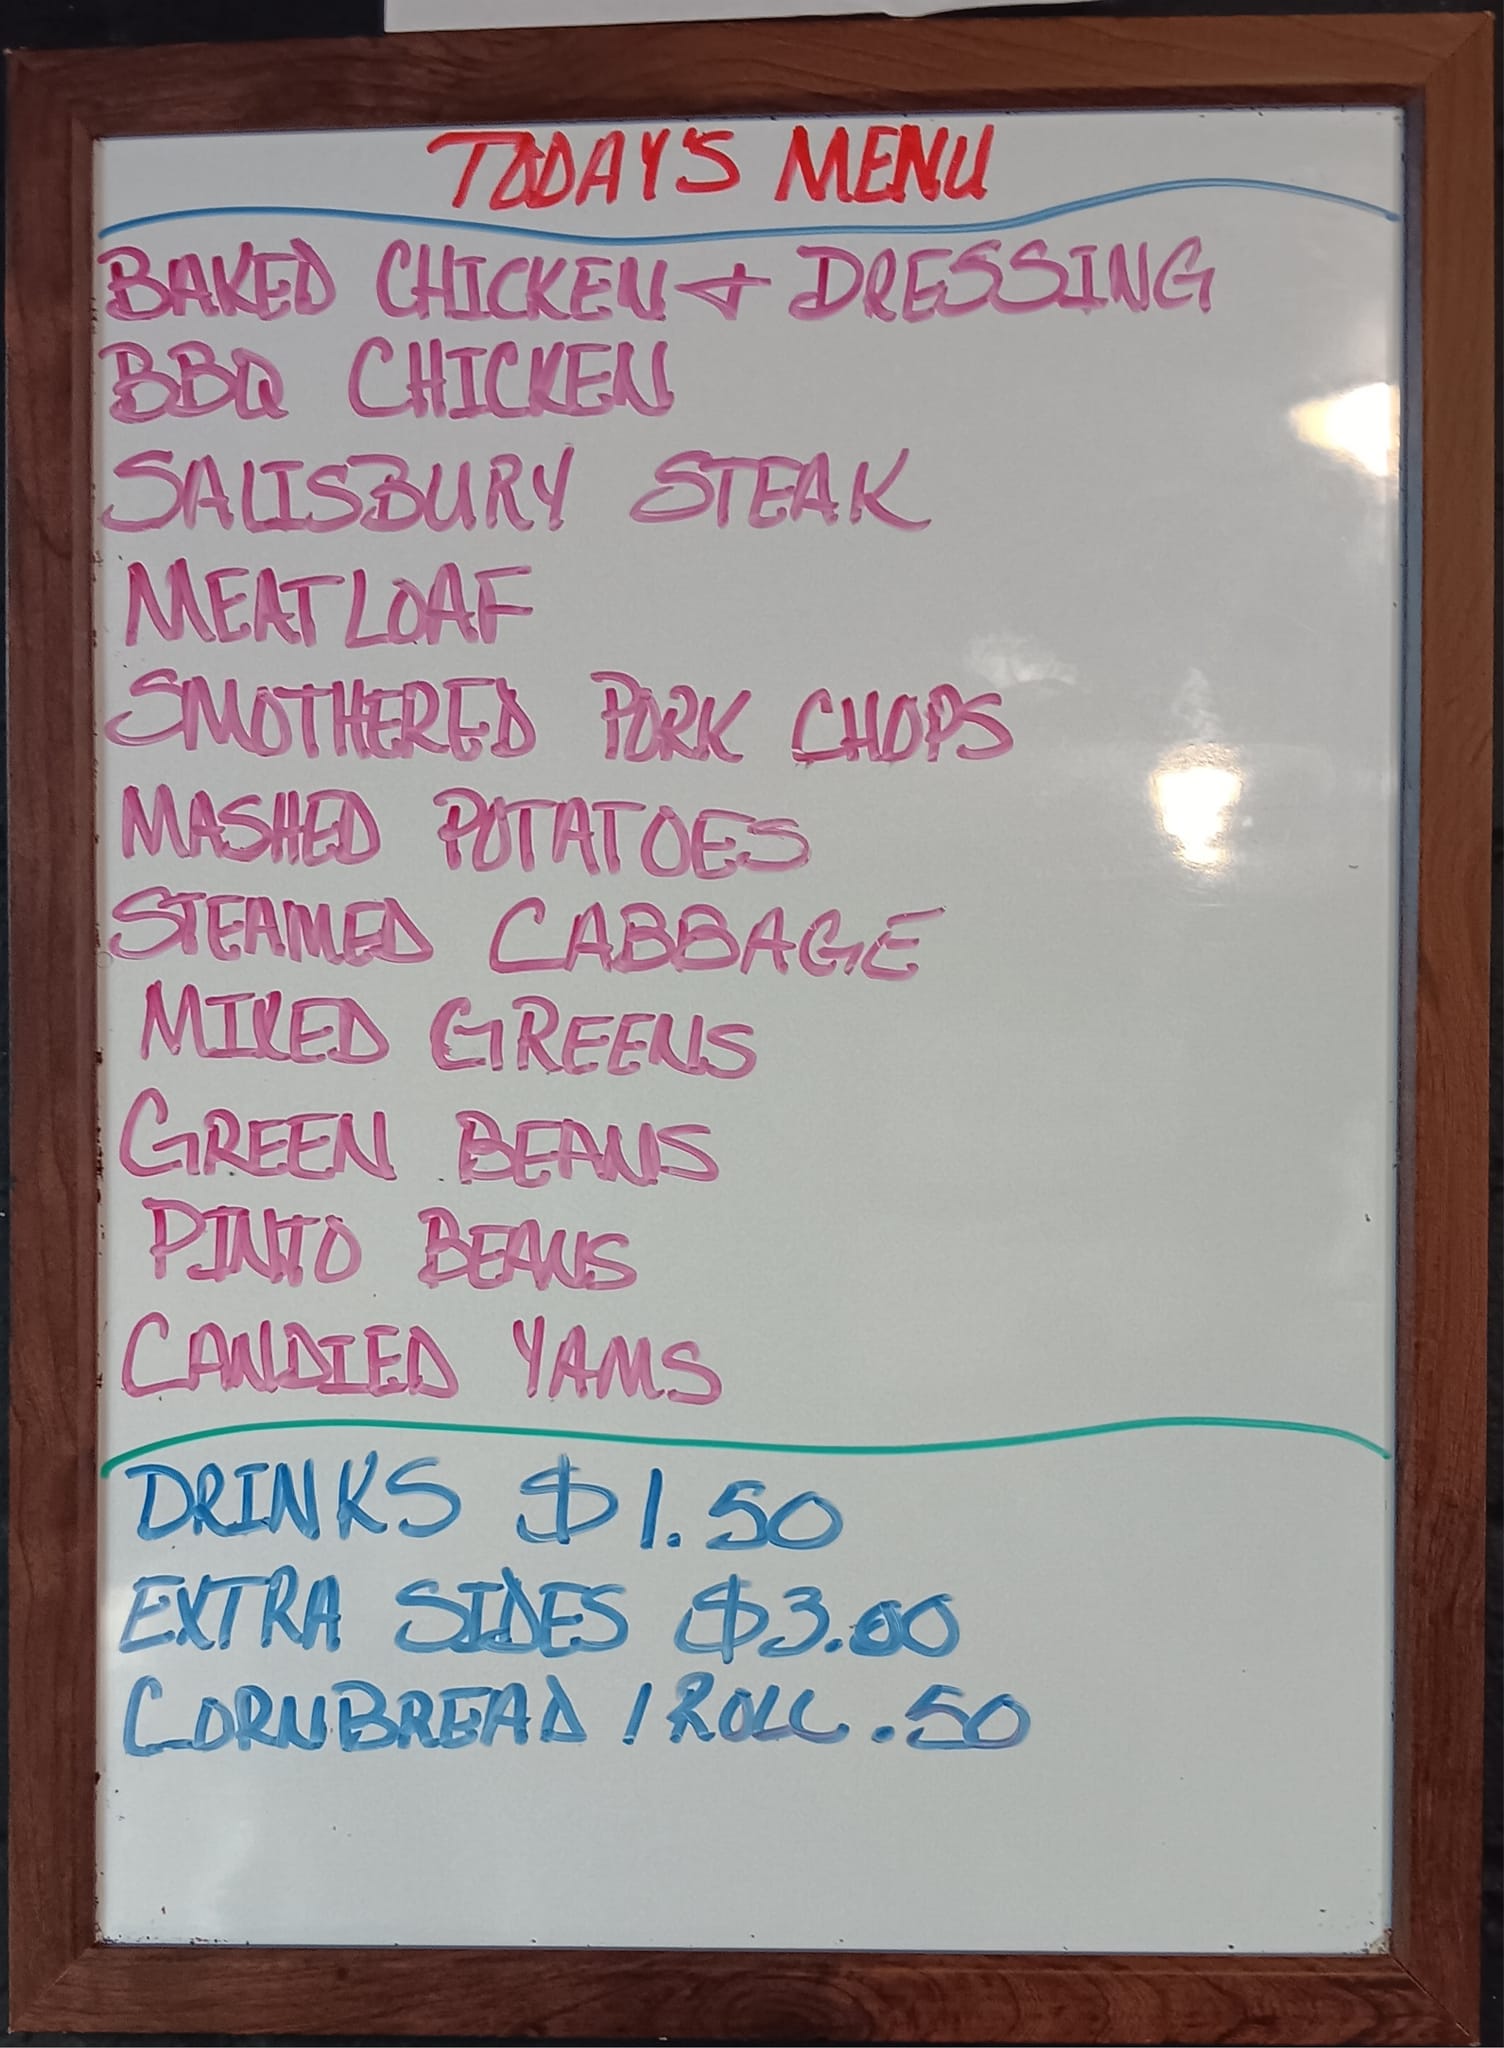 TODAY'S MENU
BAKED CHICKEN + DRESSING
BBQ CHICKEN
SALISBURY STEAK
MEATLOAF
SMOTHERED PORK CHOPS
MASHED POTATOES
STEAMED CABBAGE
MIXED GREENS
GREEN BEANS
PINTO BEANS
CANDIED YAMS
DRINKS $1.50
EXTRA SIDES $3.00
CORNBREAD / ROLL .50